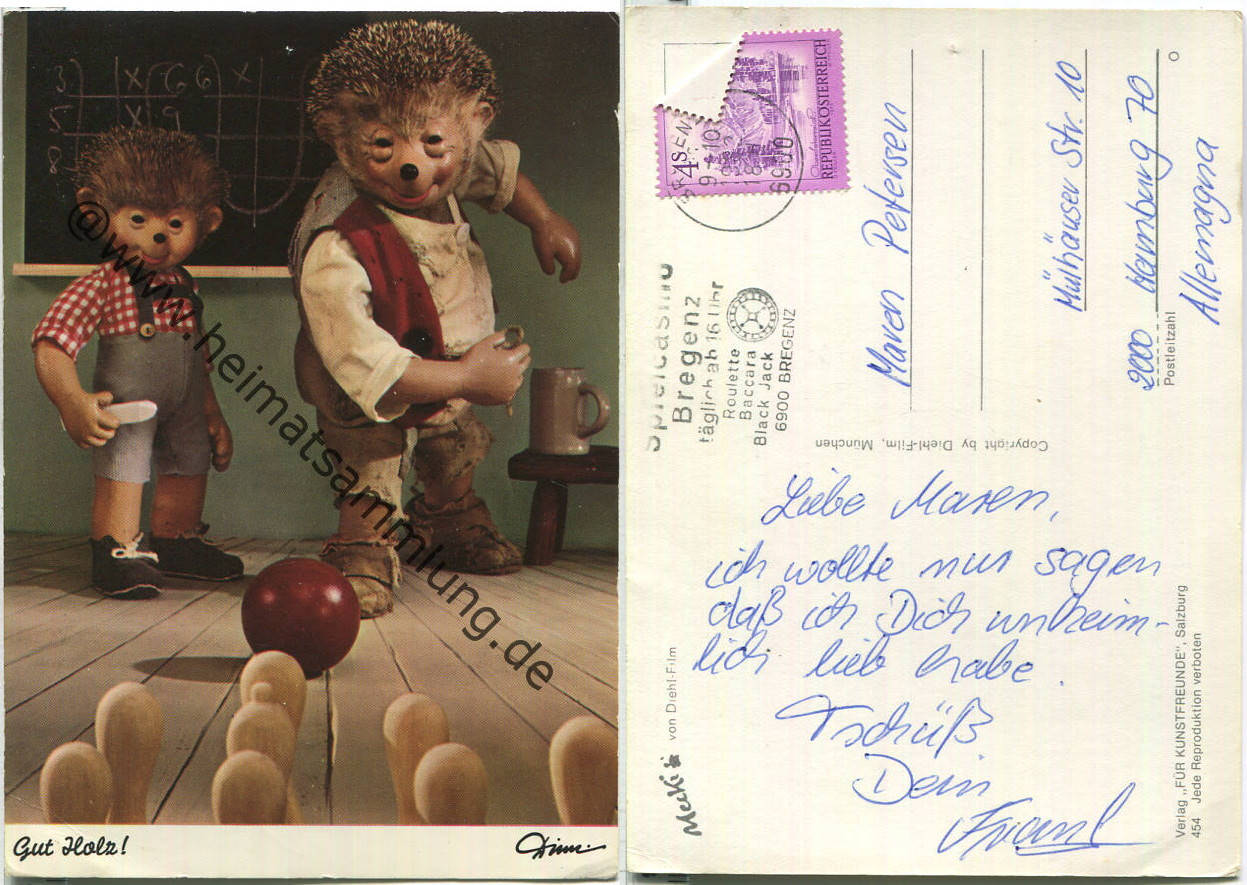 3) X 6 6 X
5 X 9
8
@www.heimatsammlung.de
Gut Holz!
Diehl
4S
REPUBLIK ÖSTERREICH
6900
Spielcasino
Bregenz
täglich ab 16 Uhr
Roulette
Baccara
Black Jack
6900 BREGENZ
Maren Petersen
Mülhäuser Str. 10
2000 Hamburg 70
Postleitzahl
Allemagna
Copyright by Diehl-Film, München
Liebe Maren,
ich wollte nur sagen
daß ich Dich unheim-
lich lieb habe.
Tschüß
Dein
Mecki von Diehl-Film
Verlag „FÜR KUNSTFREUNDE", Salzburg
454 Jede Reproduktion verboten